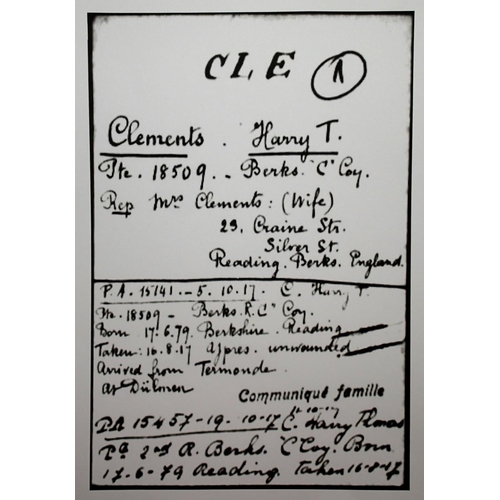 CLE 1
Clements. Harry T.
Pte. 18509. - Berks. "C" Coy.
Rep Mrs Clements: (Wife)
29. Craine Str.
Silver St.
Reading. Berks. England.
P.A. 15141. - 5. 10. 17. C. Harry T.
Pte. 18509 - Berks. R. C" Coy.
Born 17.6.79. Berkshire. Reading
Taken: 16.8.17 Ypres. unwounded
Arrived from Termonde.
at Dülmen
Communiqué famille
PA 15457-19. 10-17 C. Harry Thomas
2nd R. Berks. C Coy. Born
17-6-79 Reading. Taken 16-8-17